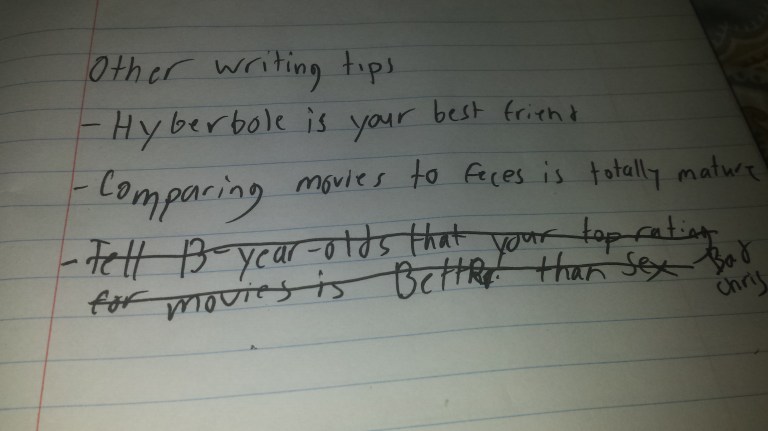 Other writing tips
- Hyberbole is your best friend
- Comparing movies to feces is totally mature
- Tell 13-year-olds that your top rating
for movies is Better than sex Bad
Chris